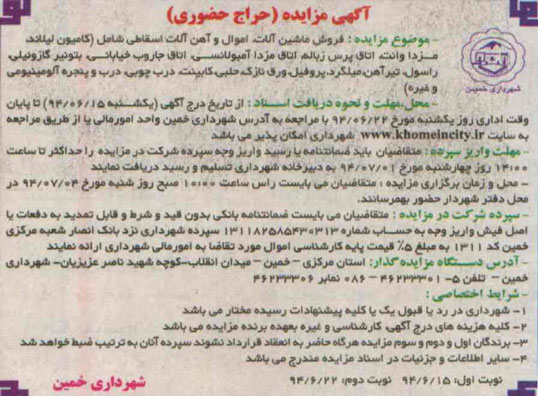 آگهی مزایده (حراج حضوری)
- موضوع مزایده : فروش ماشین آلات، اموال و آهن آلات اسقاطی شامل (کامیون لیلاند،
مزدا وانت، اتاق پرس زباله، اتاق مزدا آمبولانسی، اتاق جاروب خیابانی، بتونیر گازوئیلی،
راسول، تیرآهن، میلگرد، پروفیل، ورق نازک، حلبی، کابینت، درب چوبی، درب و پنجره آلومینیومی
و غیره)
شهرداری خمین
- محل، مهلت و نحوه دریافت اسناد : از تاریخ درج آگهی (یکشنبه ۹۴/۰۶/۱۵) تا پایان
وقت اداری روز یکشنبه مورخ ۹۴/۰۶/۲۲ با مراجعه به آدرس شهرداری خمین واحد امورمالی یا از طریق مراجعه
به سایت www.khomeincity.ir شهرداری امکان پذیر می باشد
- مهلت واریز سپرده : متقاضیان باید ضمانتنامه یا رسید واریز وجه سپرده شرکت در مزایده را حداکثر تا ساعت
۱۴:۰۰ روز چهارشنبه مورخ ۹۴/۰۷/۰۱ به دبیرخانه شهرداری تسلیم و رسید دریافت نمایند
- محل و زمان برگزاری مزایده : متقاضیان می بایست راس ساعت ۱۰:۰۰ صبح روز شنبه مورخ ۹۴/۰۷/۰۴ در
محل دفتر شهردار حضور بهمرسانند.
- سپرده شرکت در مزایده : متقاضیان می بایست ضمانتنامه بانکی بدون قید و شرط و قابل تمدید به دفعات یا
اصل فیش واریز وجه به حساب شماره ۱۳۱۱۸۲۵۸۵۴۳۰۳۱۳ سپرده شهرداری نزد بانک انصار شعبه مرکزی
خمین کد ۱۳۱۱ به مبلغ ۵٪ قیمت پایه کارشناسی اموال مورد تقاضا به امورمالی شهرداری ارائه نمایند
- آدرس دستگاه مزایده گذار: استان مرکزی – خمین – میدان انقلاب-کوچه شهید ناصر عزیزیان- شهرداری
خمین – تلفن ۵-۴۶۲۲۳۳۰۱ – ۰۸۶ نمابر ۴۶۲۲۳۳۰۶
- شرایط اختصاصی :
۱- شهرداری در رد یا قبول یک یا کلیه پیشنهادات رسیده مختار می باشد
۲- کلیه هزینه های درج آگهی، کارشناسی و غیره بعهده برنده مزایده می باشد
۳- برندگان اول و دوم و سوم مزایده هرگاه حاضر به انعقاد قرارداد نشوند سپرده آنان به ترتیب ضبط خواهد شد
۴- سایر اطلاعات و جزئیات در اسناد مزایده مندرج می باشد
نوبت اول: ۹۴/۶/۱۵ نوبت دوم: ۹۴/۶/۲۲
شهرداری خمین